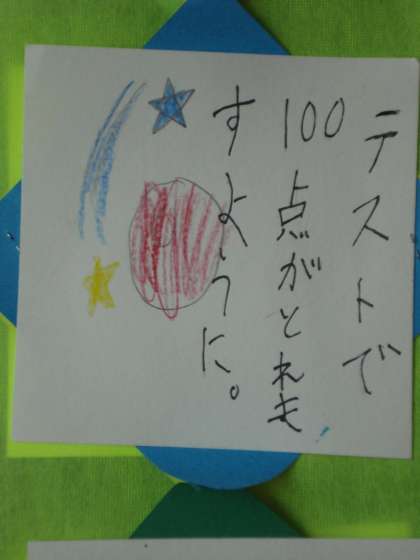 テストで
100点がとれま
すように。